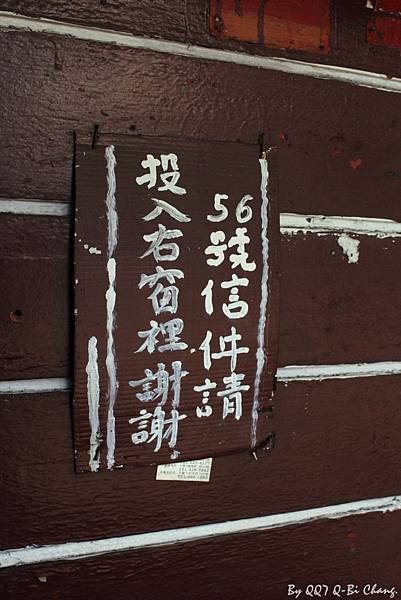 56號信件請
投入右窗裡謝謝
By QQ7 Q-Bi Chang.